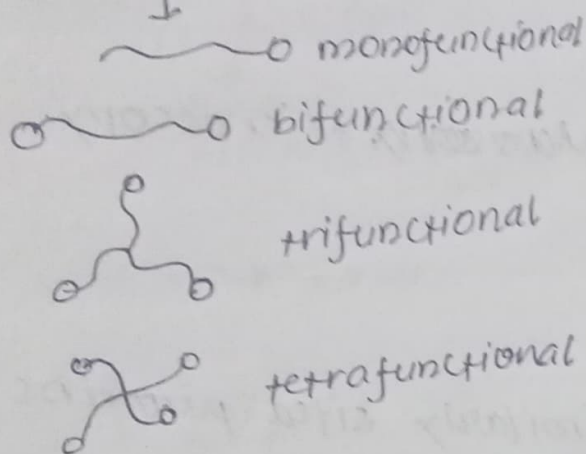 monofunctional
bifunctional
trifunctional
tetrafunctional